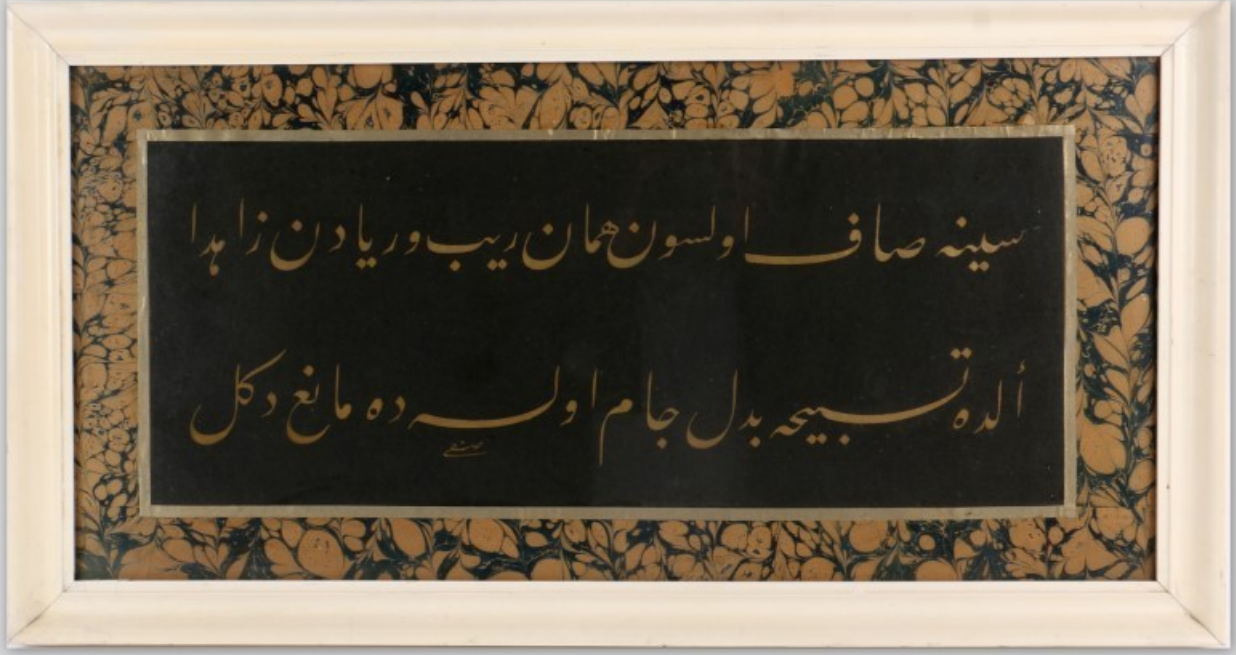 سینه صاف اولسون همان ریب و ریادن زاهدا
ألده تسبیحه بدل جام اولسه ده مانع دكل